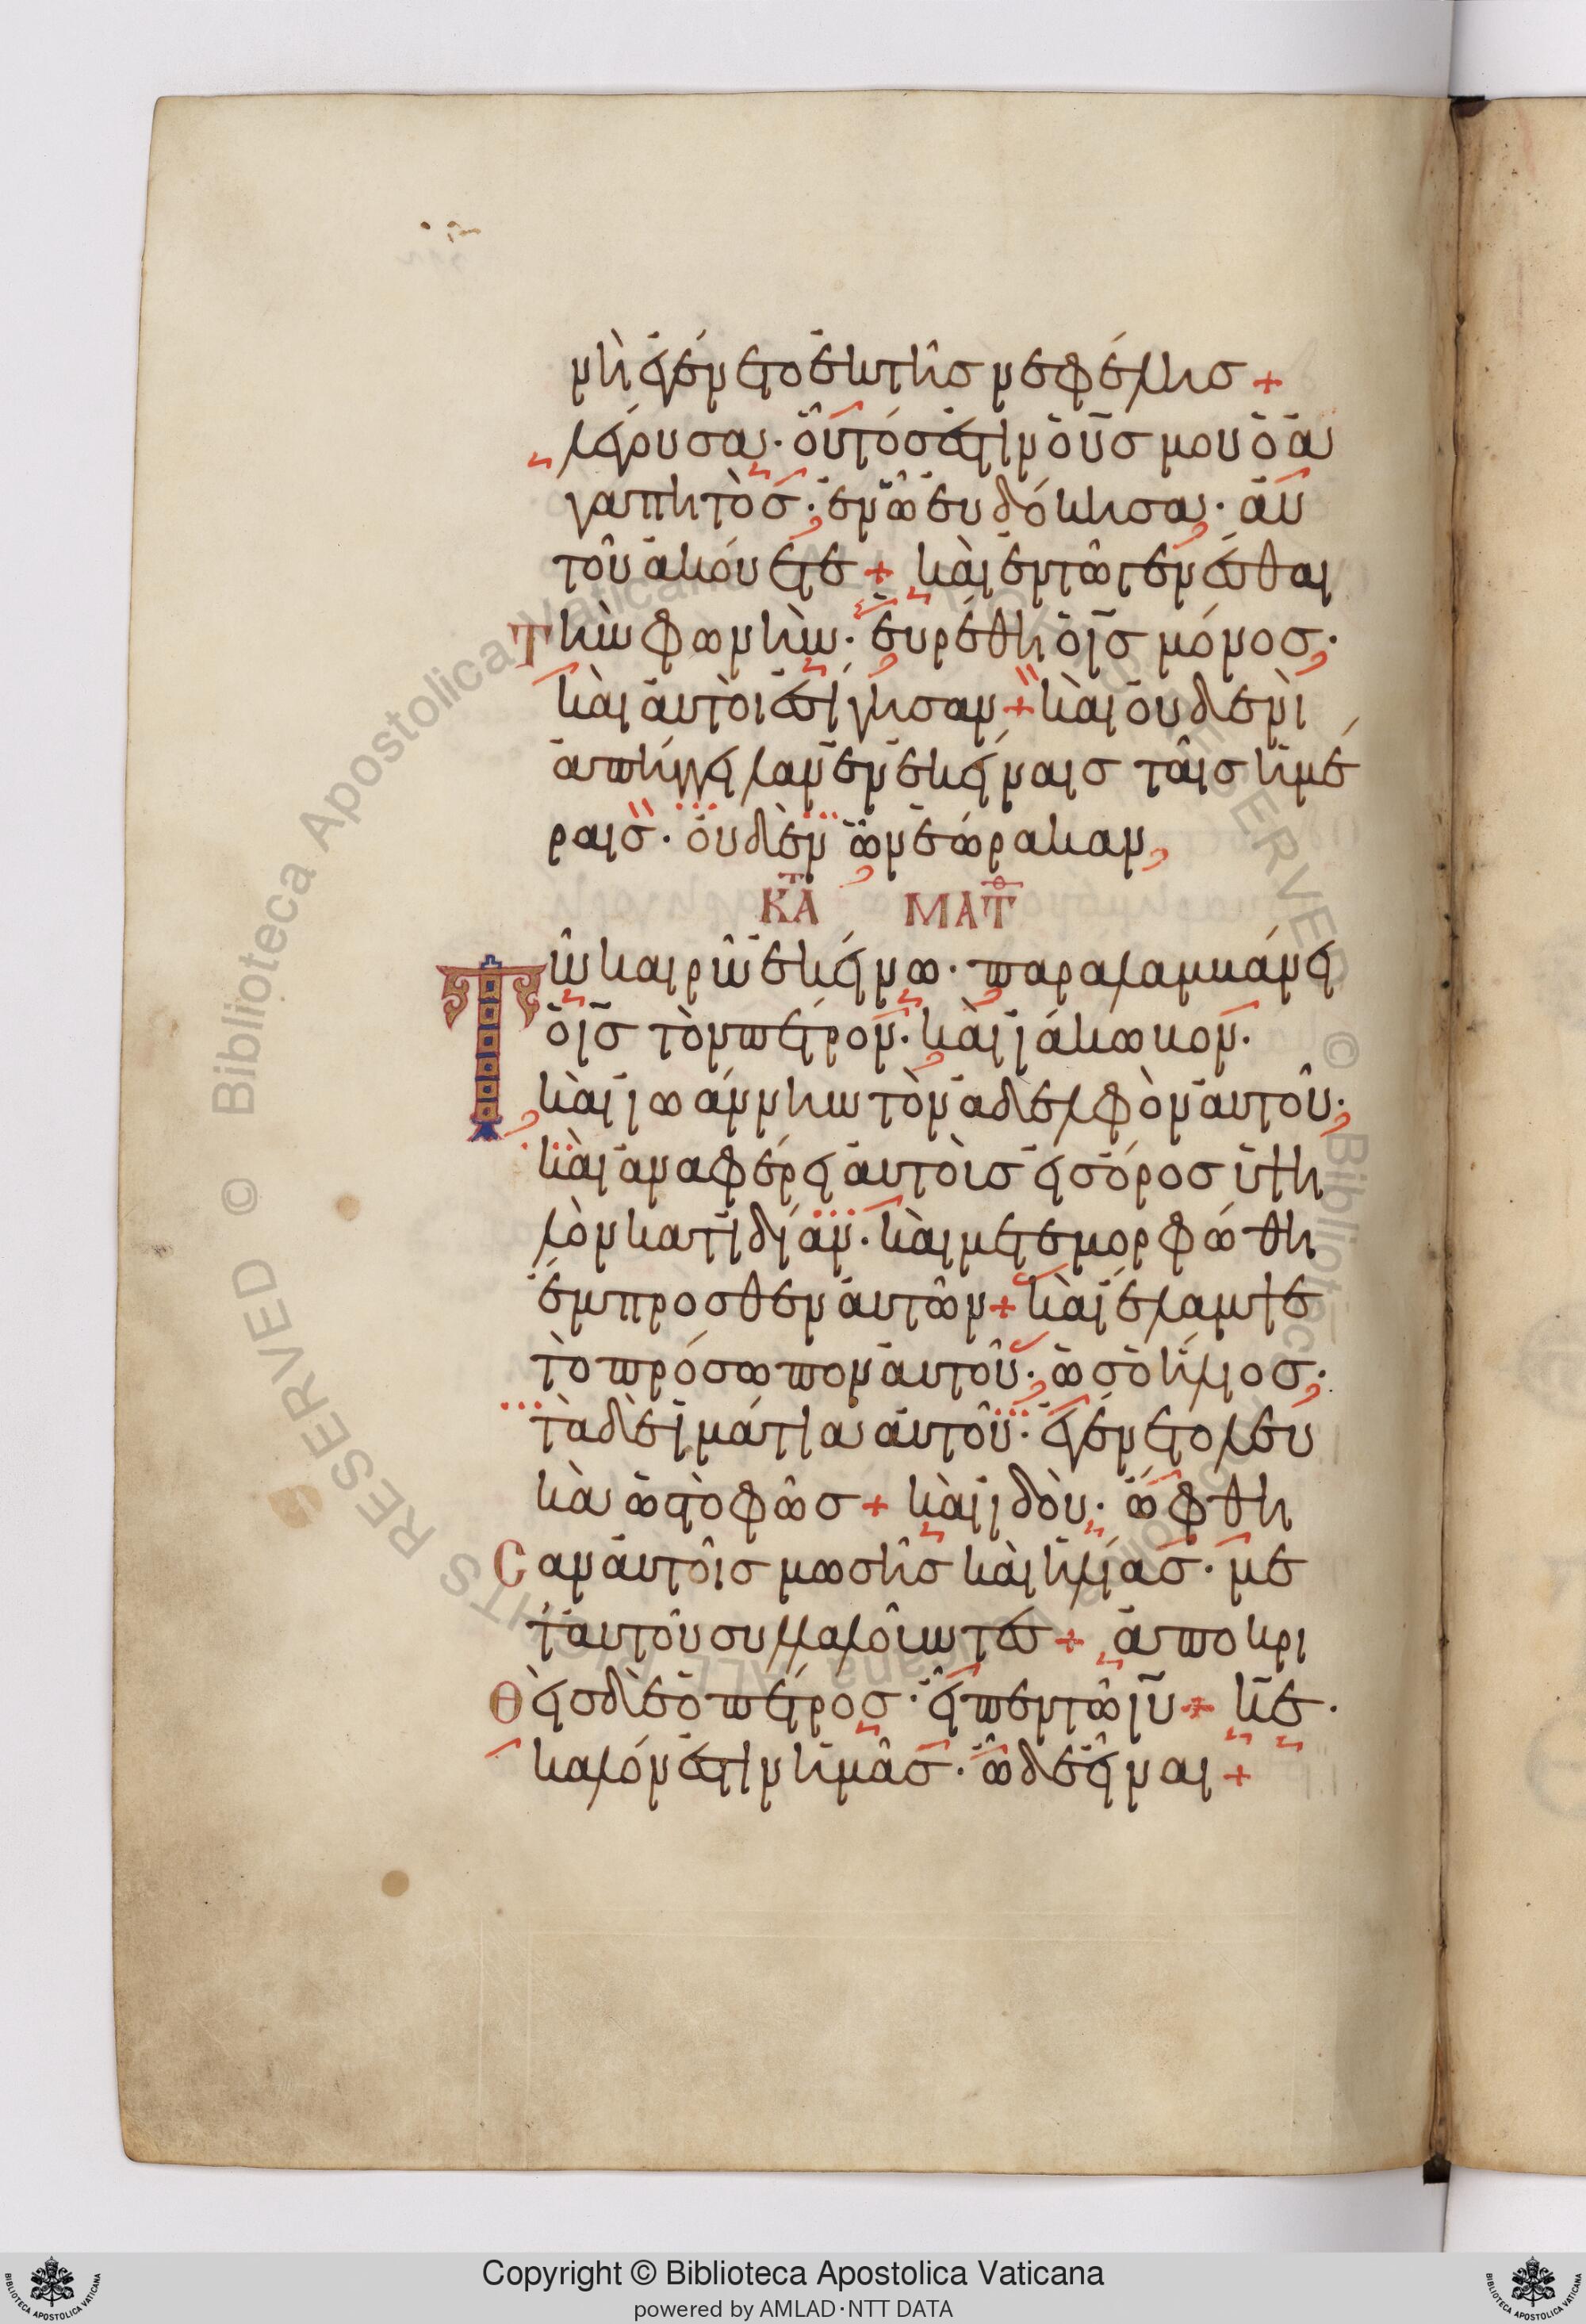 νὴ ἐγένετο ἐκ τῆς νεφέλης +
λέγουσα· οὗτός ἐστιν ὁ υς μου ὁ ἀ
γαπητὸς· ἐν ὧ εὐδόκησα· αὐ
τοῦ ἀκούετε + καὶ ἐν τῶ γενέσθαι
τὴν φωνὴν· εὑρέθη ὁ ις μόνος·
καὶ αὐτοὶ ἐσίγησαν + καὶ οὐδενὶ
ἀπήγγειλαν ἐν ἐκείναις ταῖς ἡμέ
ραις· οὐδὲν ὧν ἑώρακαν
ΚΑΤ ΜΑΤΘ
Τῶ καιρῶ ἐκείνω· παραλαμβάνει
ὁ ις τὸν πέτρον· καὶ ἰάκωβον·
καὶ ἰωάννην τὸν ἀδελφὸν αὐτοῦ·
καὶ ἀναφέρει αὐτοὺς εἰς ὄρος ὑψη
λὸν κατ ἰδίαν· καὶ μετεμορφώθη
ἔμπροσθεν αὐτῶν + καὶ ἔλαμψε
τὸ πρόσωπον αὐτοῦ· ὡς ὁ ἥλιος·
τὰ δὲ ἱμάτια αὐτοῦ· ἐγένετο λευ
κὰ ὡς τὸ φῶς + καὶ ἰδοὺ· ὤφθη
σαν αὐτοῖς μωσῆς καὶ ἠλίας· με
τ αὐτοῦ συλλαλοῦντες + ἀποκρι
θεὶς δὲ ὁ πέτρος· εἶπεν τῶ ιυ + κε·
καλόν ἐστιν ἡμᾶς· ὧδε εἶναι +
Copyright © Biblioteca Apostolica Vaticana
powered by AMLAD·NTT DATA